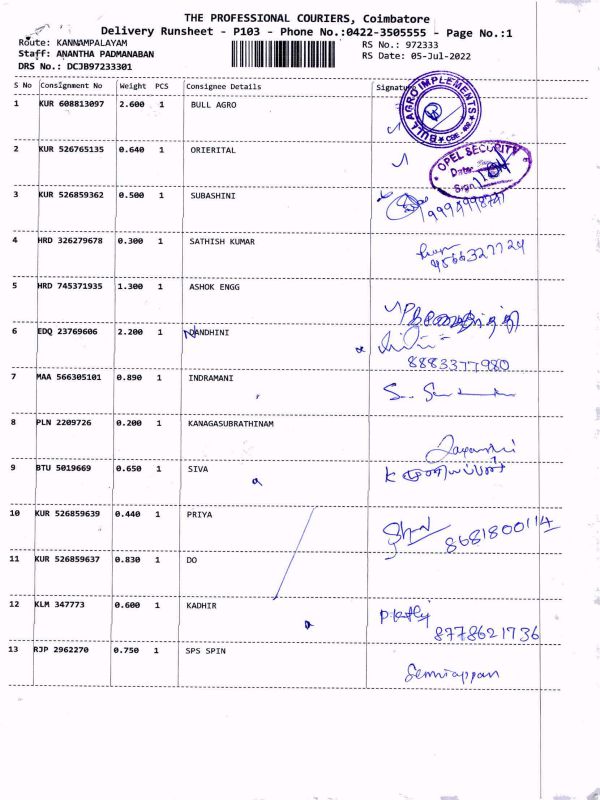 THE PROFESSIONAL COURIERS, Coimbatore
Delivery Runsheet - P103 - Phone No.:0422-3505555 - Page No.:1
Route: KANNAMPALAYAM RS No.: 972333
Staff: ANANTHA PADMANABAN RS Date: 05-Jul-2022
DRS No.: DCJB97233301
S No Consignment No Weight PCS Consignee Details Signature
1 KUR 608813097 2.600 1 BULL AGRO
BULL AGRO IMPLEMENTS
2 KUR 526765135 0.640 1 ORIERITAL
OPEL SECURITY
Date:
Sign
3 KUR 526859362 0.500 1 SUBASHINI
4 HRD 326279678 0.300 1 SATHISH KUMAR
9566327724
5 HRD 745371935 1.300 1 ASHOK ENGG
6 EDQ 23769606 2.200 1 NANDHINI
8883377980
7 MAA 566305101 0.890 1 INDRAMANI
8 PLN 2209726 0.200 1 KANAGASUBRATHINAM
9 BTU 5019669 0.650 1 SIVA
10 KUR 526859639 0.440 1 PRIYA
8681800114
11 KUR 526859637 0.830 1 DO
12 KLM 347773 0.600 1 KADHIR
8778621736
13 RJP 2962270 0.750 1 SPS SPIN
Senniappan